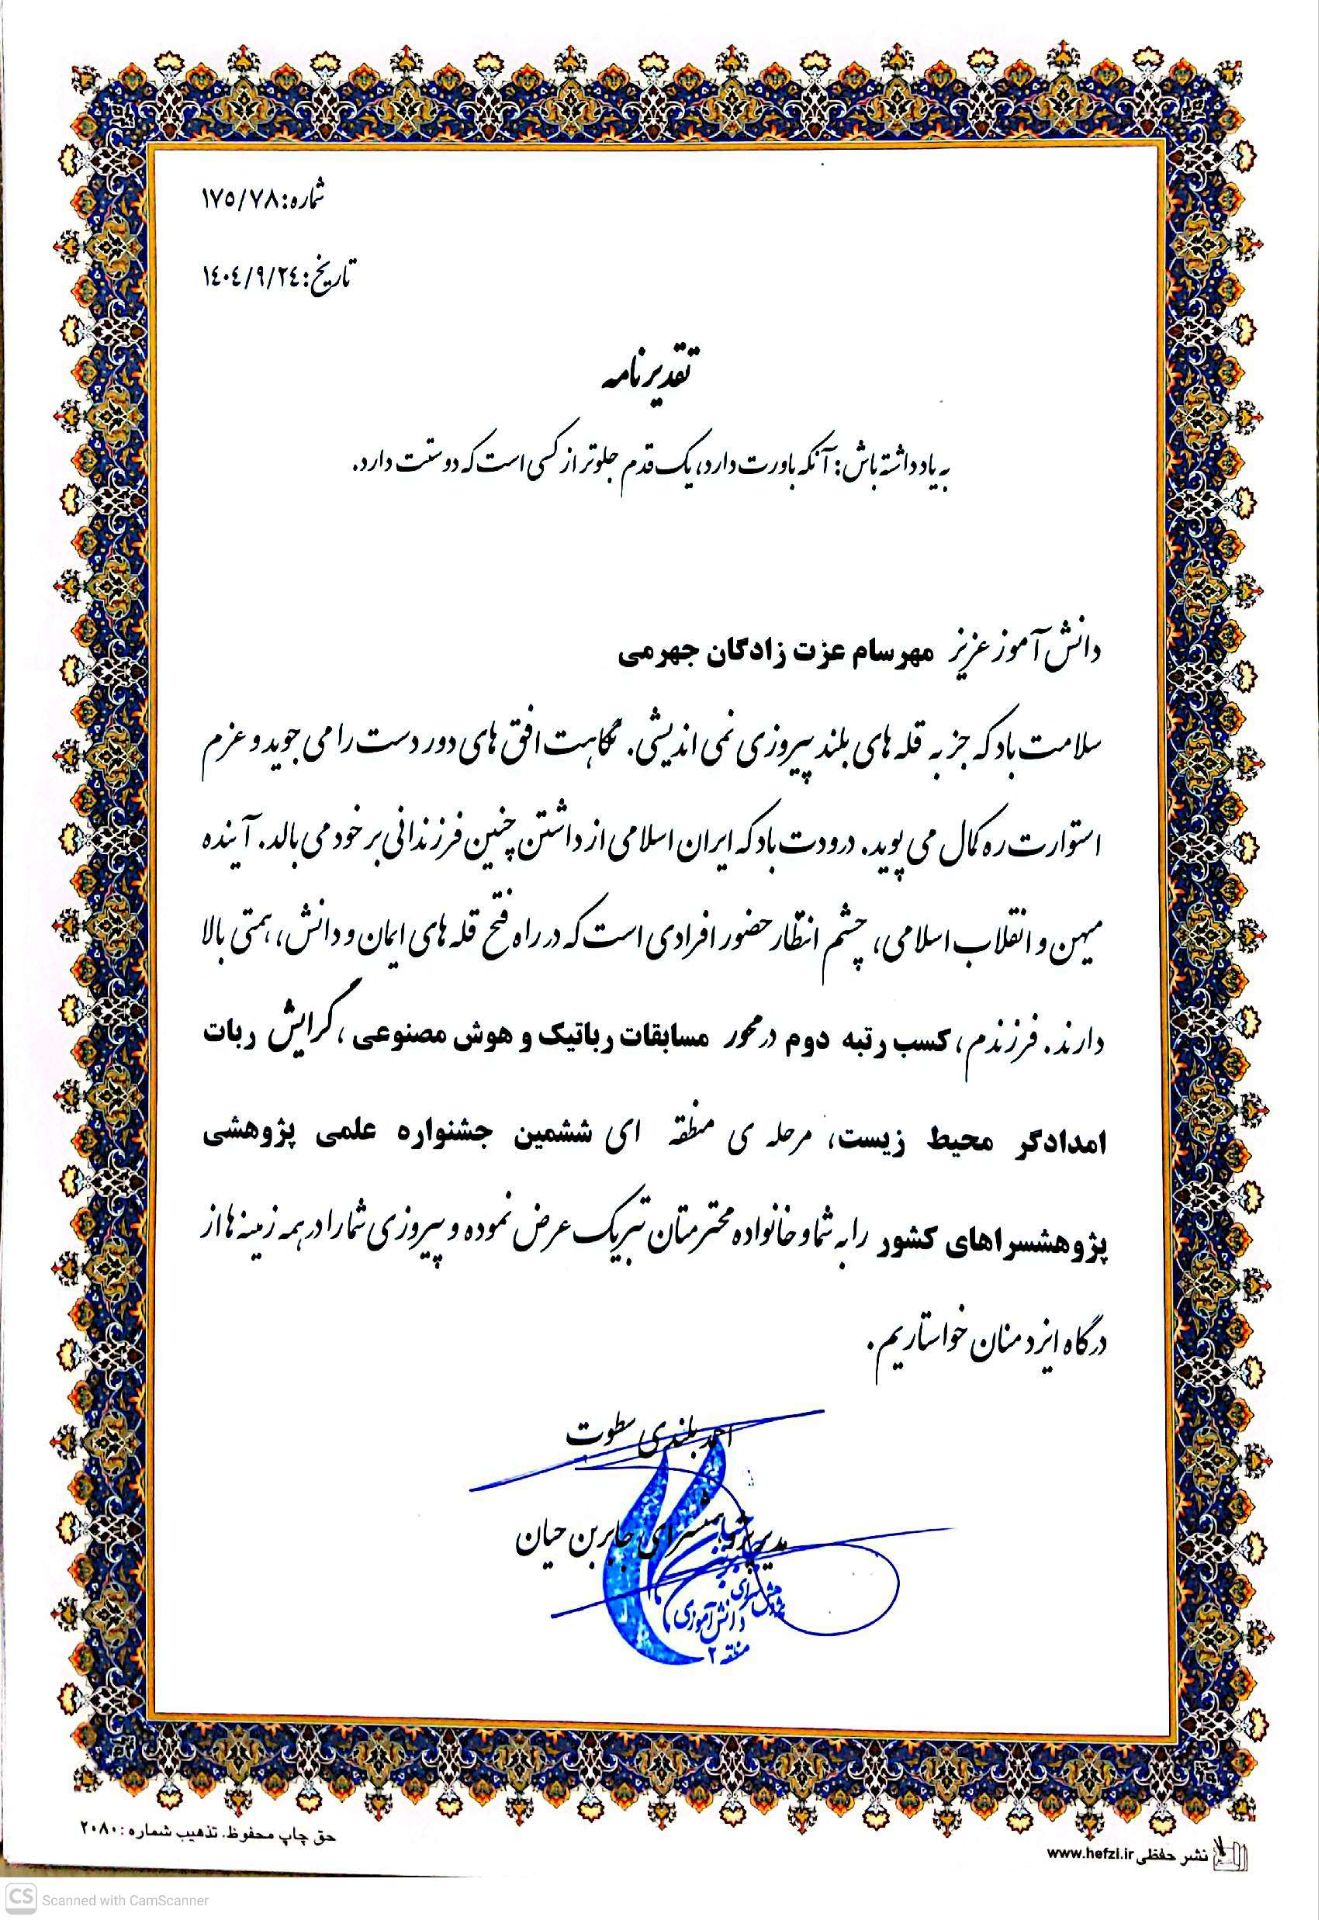 شماره: ۱۷۵/۷۸
تاریخ: ۱۴۰۴/۹/۲۴
تقدیرنامه
به یاد داشته باش: آنکه باورت دارد، یک قدم جلوتر از کسی است که دوستت دارد.
دانش آموز عزیز مهرسام عزت زادگان جهرمی
سلامت باد که جز به قله های بلند پیروزی نمی اندیشی. نگاهت افق های دور دست را می جوید و عزم
استوارت ره کمال می پوید. درودت باد که ایران اسلامی از داشتن چنین فرزندانی بر خود می بالد. آینده
میهن و انقلاب اسلامی، چشم انتظار حضور افرادی است که در راه فتح قله های ایمان و دانش، همتی بالا
دارند. فرزندم، کسب رتبه دوم در محور مسابقات رباتیک و هوش مصنوعی ، گرایش ربات
امدادگر محیط زیست، مرحله ی منطقه ای ششمین جشنواره علمی پژوهشی
پژوهشسراهای کشور را به شما و خانواده محترمتان تبریک عرض نموده و پیروزی شما را در همه زمینه ها از
درگاه ایزد منان خواستاریم.
احمد بلندی سطوت
مدیر پژوهشسرای جابربن حیان
پژوهش سرای
دانش آموزی
منطقه ۲
حق چاپ محفوظ. تذهیب شماره: ۲۰۸۰
نشر حفظی www.hefzi.ir
CS Scanned with CamScanner